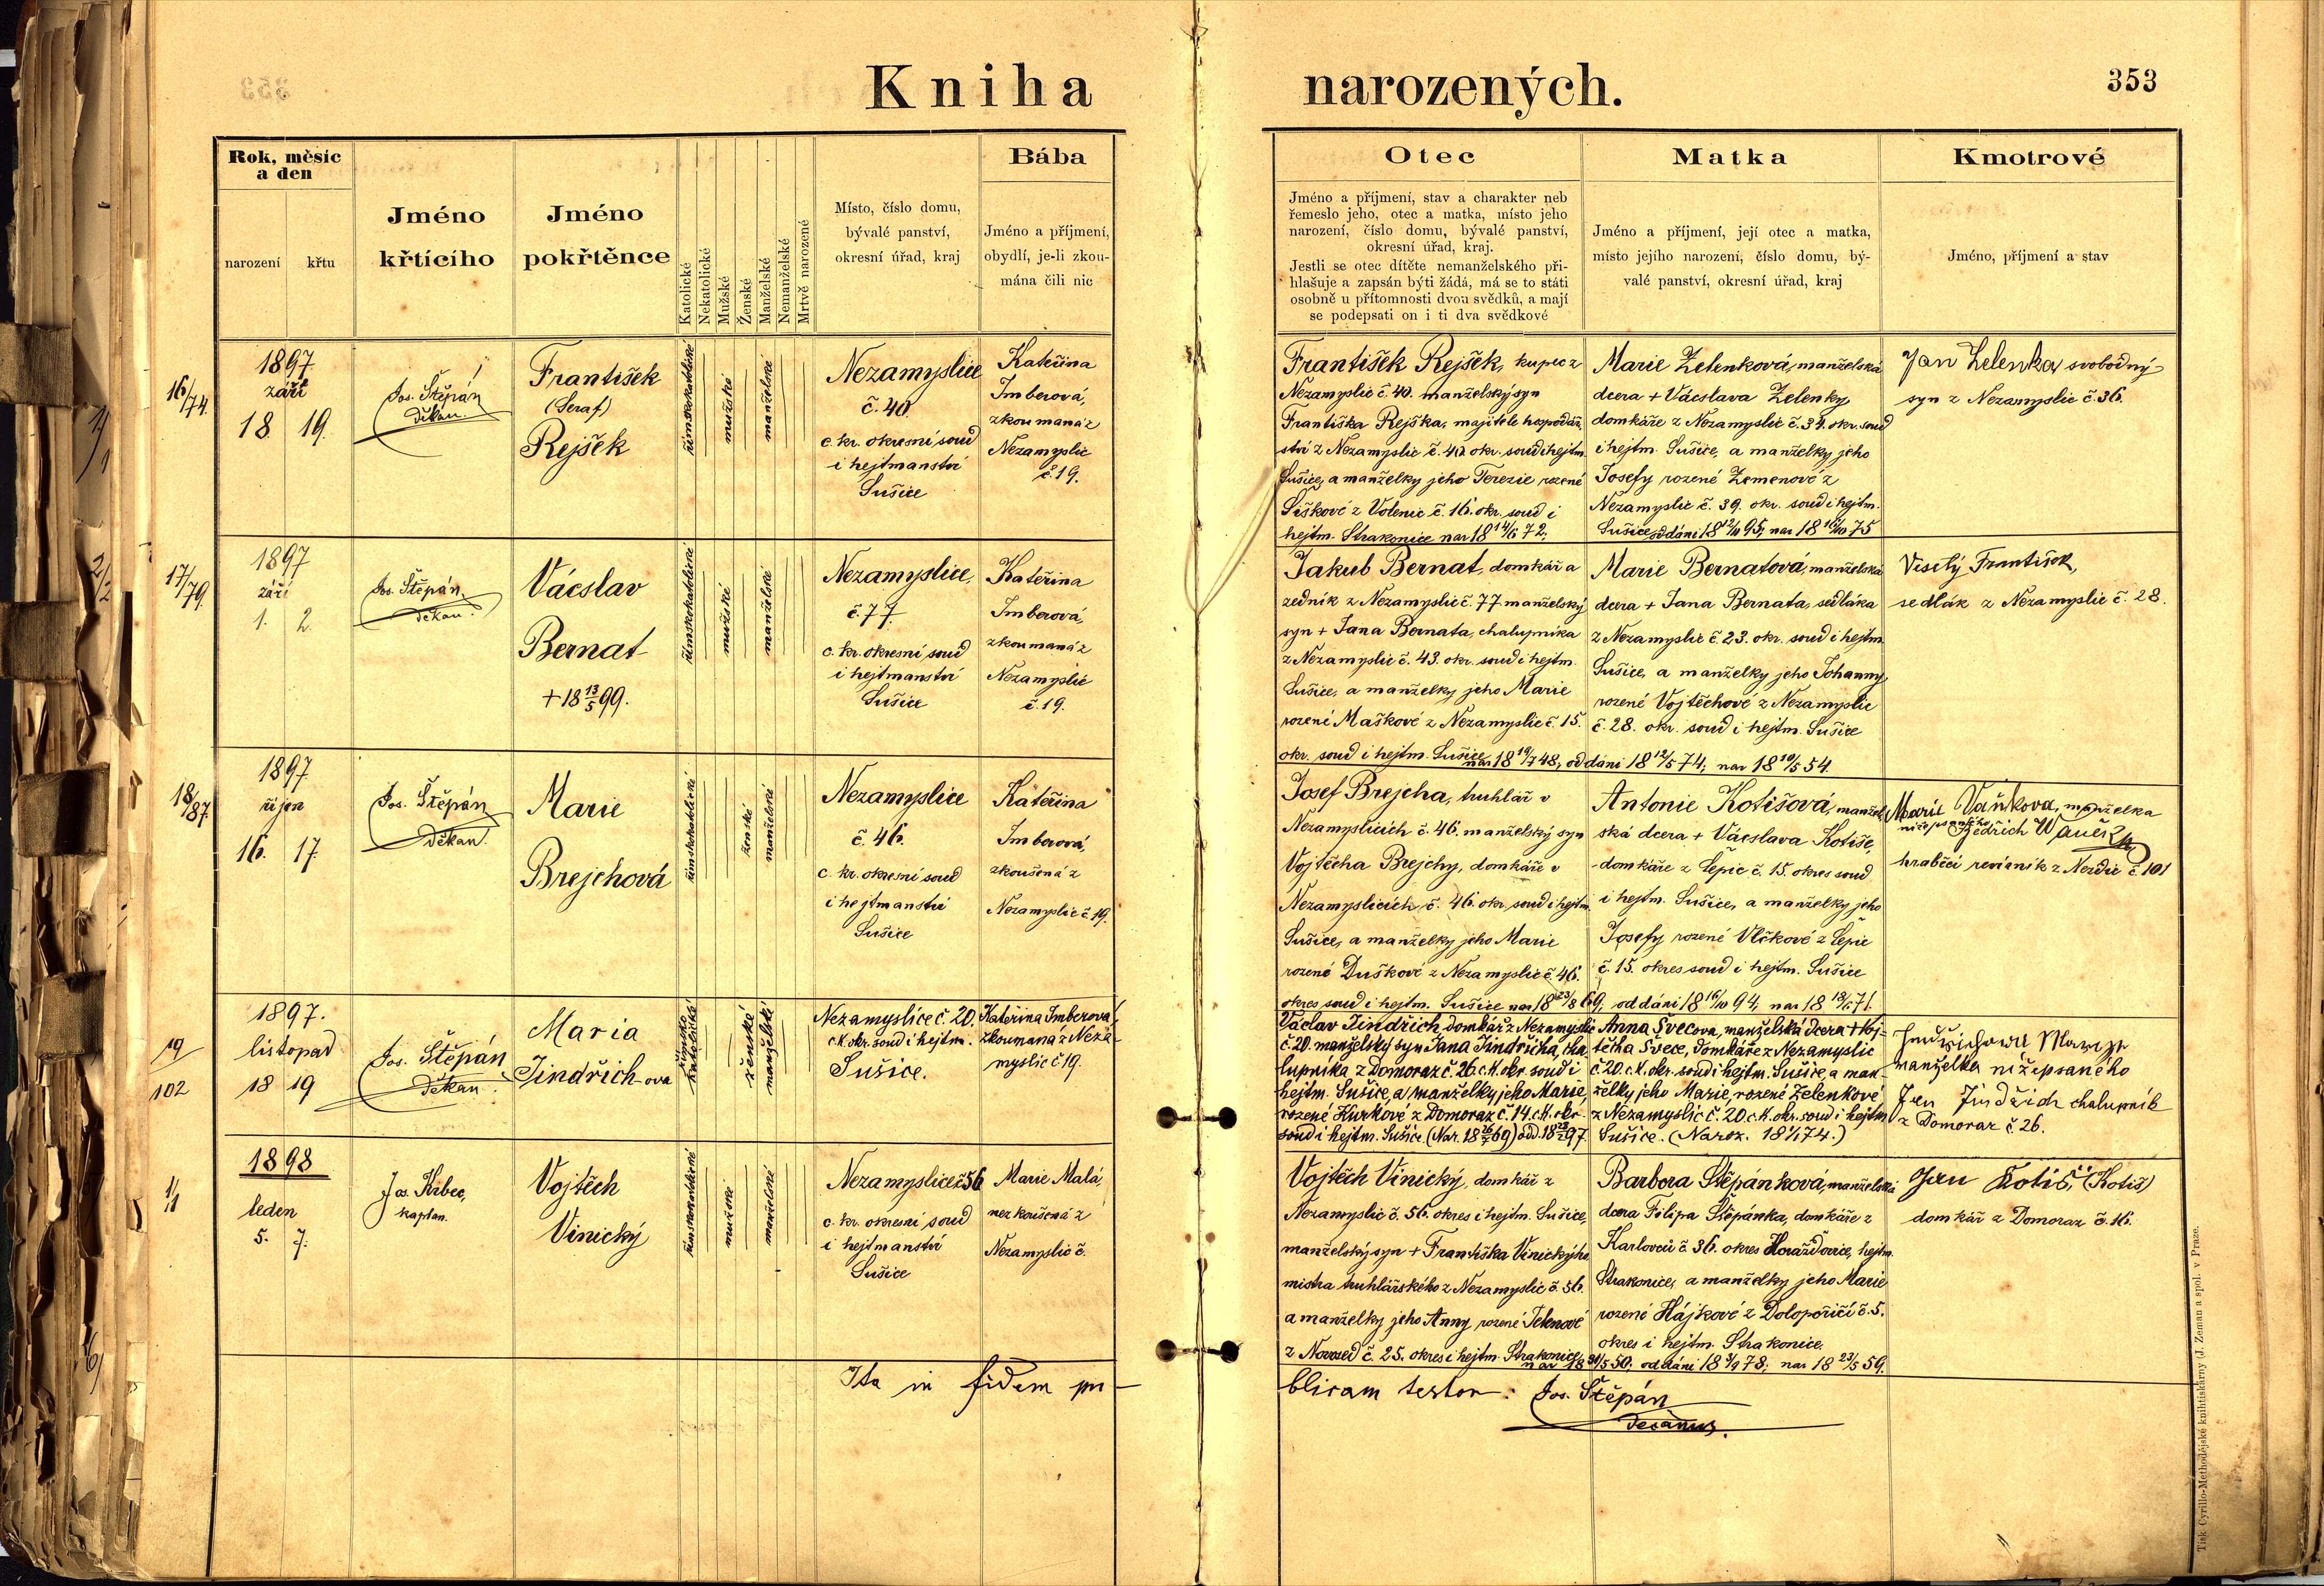 Kniha narozených.
353
Rok, měsíc
a den
narození
křtu
Jméno
křtícího
Jméno
pokřtěnce
Katolické
Nekatolické
Mužské
Ženské
Manželské
Nemanželské
Mrtvě narozené
Místo, číslo domu,
bývalé panství,
okresní úřad, kraj
Bába
Jméno a příjmení,
obydlí, je-li zkou-
mána čili nic
Otec
Jméno a příjmení, stav a charakter neb
řemeslo jeho, otec a matka, místo jeho
narození, číslo domu, bývalé panství,
okresní úřad, kraj.
Jestli se otec dítěte nemanželského při-
hlašuje a zapsán býti žádá, má se to státi
osobně u přítomnosti dvou svědků, a mají
se podepsati on i ti dva svědkové
Matka
Jméno a příjmení, její otec a matka,
místo jejího narození, číslo domu, bý-
valé panství, okresní úřad, kraj
Kmotrové
Jméno, příjmení a stav
16/74.
1897
září
18. 19.
Jos. Štěpán
děkan.
František
(Seraf)
Rejšek
římskokatolické
mužské
manželské
Nezamyslice
č. 40.
c. kr. okresní soud
i hejtmanství
Sušice
Kateřina
Imberová,
zkoumaná z
Nezamyslic
č. 19.
František Rejšek, kupec z
Nezamyslic č. 40. manželský syn
Františka Rejška, majitele hospodář-
ství z Nezamyslic č. 40 okr. soud i hejtm.
Sušice, a manželky jeho Terezie rozené
Šiškové z Volenic č. 16. okr. soud i
hejtm. Strakonice nar 18 14/6 72,
Marie Zelenková, manželská
dcera + Vácslava Zelenky
domkáře z Nezamyslic č. 34. okr. soud
i hejtm. Sušice, a manželky jeho
Josefy rozené Zemenové z
Nezamyslic č. 39. okr. soud i hejtm.
Sušice, oddáni 18 12/11 95, nar 18 16/10 75
Jan Zelenka svobodný
syn z Nezamyslic č. 36.
17/79.
1897
září
1. 2.
Jos. Štěpán,
děkan.
Vácslav
Bernat
+ 18 13/5 99.
římskokatolické
mužské
manželské
Nezamyslice,
č. 77.
c. kr. okresní soud
i hejtmanství
Sušice
Kateřina
Imberová,
zkoumaná z
Nezamyslic
č. 19.
Jakub Bernat, domkář a
zedník z Nezamyslic č. 77 manželský
syn + Jana Bernata, chalupníka
z Nezamyslic č. 43. okr. soud i hejtm.
Sušice, a manželky jeho Marie
rozené Maškové z Nezamyslic č. 15.
okr. soud i hejtm. Sušice nar 18 19/7 48, oddáni 18 12/5 74, nar 18 10/5 54.
Marie Bernatová, manželská
dcera + Jana Bernata, sedláka
z Nezamyslic č. 23. okr. soud i hejtm.
Sušice, a manželky jeho Johanny
rozené Vojtěchové z Nezamyslic
č. 28. okr. soud i hejtm. Sušice
Viselý František,
sedlák z Nezamyslic č. 28.
18/87.
1897
říjen
16. 17.
Jos. Štěpán
děkan.
Marie
Brejchová
římskokatolické
ženské
manželské
Nezamyslice
č. 46.
c. kr. okresní soud
i hejtmanství
Sušice
Kateřina
Imberová,
zkoušená z
Nezamyslic č. 19.
Josef Brejcha, truhlář v
Nezamyslicích č. 46. manželský syn
Vojtěcha Brejchy, domkáře v
Nezamyslicích č. 46. okr. soud i hejtm.
Sušice, a manželky jeho Marie
rozené Duškové z Nezamyslic č. 46.
okres soud i hejtm. Sušice nar 18 23/8 69, oddáni 18 16/10 94, nar 18 18/5 71.
Antonie Kotišová, manžel-
ská dcera + Vácslava Kotiše,
domkáře z Čepic č. 15. okres soud
i hejtm. Sušice, a manželky jeho
Josefy rozené Vlčkové z Čepic
č. 15. okres soud i hejtm. Sušice
Marie Vaňkova, manželka
níže psaného
Jedřich Waněk
hraběcí revírník z Nezdic č. 101
19/102
1897.
listopad
18 19
Jos. Štěpán
děkan.
Maria
Jindřich-ova
římsko
katolické
ženské
manželské
Nezamyslice č. 20.
c.k. okr. soud i hejtm.
Sušice.
Kateřina Imberova
zkoumaná z Neza-
myslic č 19.
Václav Jindřich, domkář z Nezamyslic
č. 20. manželský syn Jana Jindřicha, cha-
lupníka z Domoraz č. 26. c.k. okr. soud i
hejtm. Sušice, a manželky jeho Marie,
rozené Kurkové z Domoraz č. 14. c.k. okr.
soud i hejtm. Sušice. (Nar. 18 26/5 69) odd. 18 23/2 97.
Anna Švecova, manželská dcera + Voj-
těcha Švece, domkáře z Nezamyslic
č. 20. c.k. okr. soud i hejtm. Sušice, a man-
želky jeho Marie, rozené Zelenkové,
z Nezamyslic č. 20. c.k. okr. soud i hejtm
Sušice. (Naroz. 18 1/1 74.)
manželka nížepsaného
Jan Jindřich chalupník
z Domoraz č. 26.
1/1
1898
leden
5. 7.
Jos. Krbec,
kaplan.
Vojtěch
Vinický
římskokatolické
mužské
manželské
Nezamyslice č 56
c. kr. okresní soud
i hejtmanství
Sušice
Marie Malá,
nezkoušená z
Nezamyslic č.
Vojtěch Vinický, domkář z
Nezamyslic č. 56. okres i hejtm. Sušice,
manželský syn + Františka Vinického,
mistra truhlářského z Nezamyslic č. 56.
a manželky jeho Anny rozené Jelenové
z Novosed č. 25. okres i hejtm. Strakonice, nar 18 31/5 50, oddáni 18 3/9 78, nar 18 23/5 59.
Barbora Štěpánková, manželská
dcera Filipa Štěpánka, domkáře z
Karlovců č. 36. okres Horažďovice, hejtm.
Strakonice, a manželky jeho Marie
rozené Hájkové z Dolopořičí č. 5.
okres i hejtm. Strakonice.
Jan Kotiš, (Kotiš)
domkář z Domoraz č. 16.
Ita in fidem pu-
blicam testor: Jos. Štěpán
decanus.
Tisk Cyrillo-Methodějské knihtiskárny (J. Zeman a spol. v Praze.